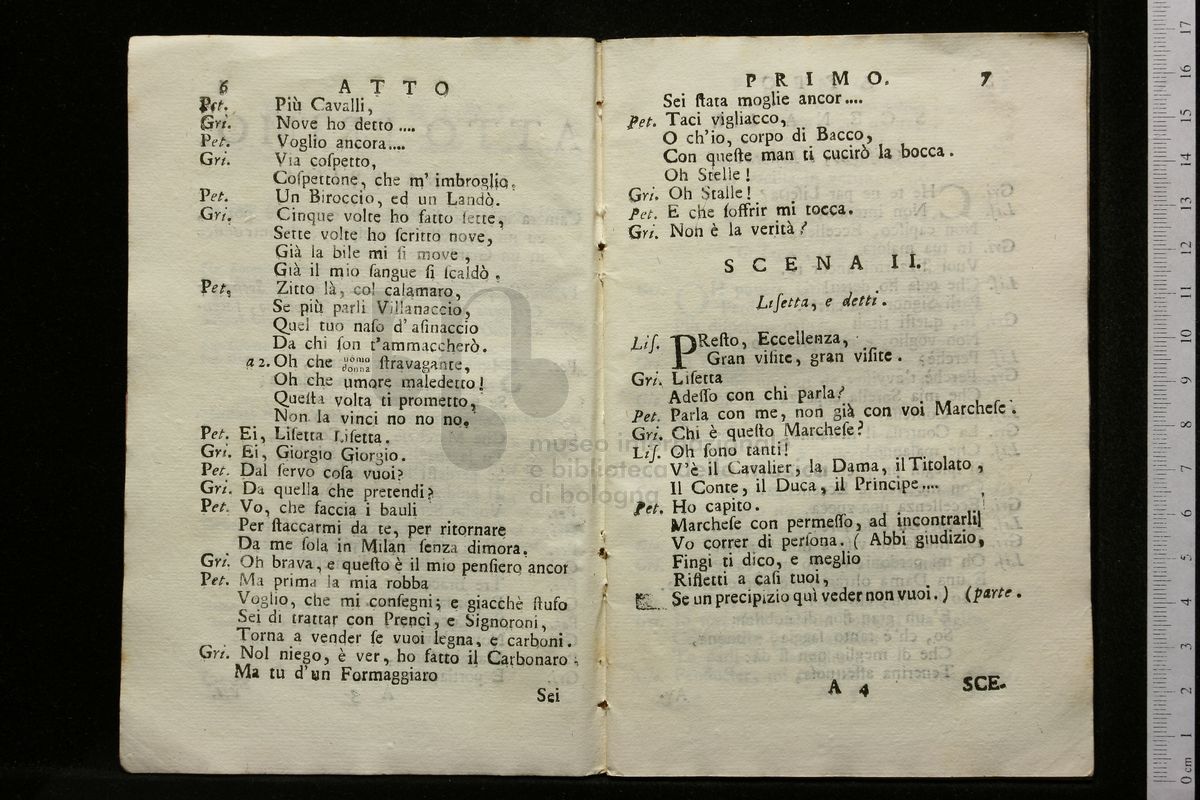 6 ATTO
Pet. Più Cavalli,
Gri. Nove ho detto ....
Pet. Voglio ancora....
Gri. Via coſpetto,
Coſpettone, che m' imbroglio.
Pet. Un Biroccio, ed un Landò.
Gri. Cinque volte ho fatto ſette,
Sette volte ho ſcritto nove,
Già la bile mi ſi move,
Già il mio ſangue ſi ſcaldò.
Pet. Zitto là, col calamaro,
Se più parli Villanaccio,
Quel tuo naſo d' aſinaccio
Da chi ſon t'ammaccherò.
a 2. Oh che uomo donna ſtravagante,
Oh che umore maledetto!
Queſta volta ti prometto,
Non la vinci no no no.
Pet. Ei, Liſetta Liſetta.
Gri. Ei, Giorgio Giorgio.
Pet. Dal ſervo coſa vuoi?
Gri. Da quella che pretendi?
Pet. Vo, che faccia i bauli
Per ſtaccarmi da te, per ritornare
Da me ſola in Milan ſenza dimora.
Gri. Oh brava, e queſto è il mio penſiero ancor
Pet. Ma prima la mia robba
Voglio, che mi conſegni; e giacchè ſtufo
Sei di trattar con Prenci, e Signoroni,
Torna a vender ſe vuoi legna, e carboni.
Gri. Nol niego, è ver, ho fatto il Carbonaro;
Ma tu d'un Formaggiaro
Sei
PRIMO. 7
Sei ſtata moglie ancor....
Pet. Taci vigliacco,
O ch'io, corpo di Bacco,
Con queſte man ti cucirò la bocca.
Oh Stelle!
Gri. Oh Stalle!
Pet. E che ſoffrir mi tocca.
Gri. Non è la verità?
SCENA II.
Liſetta, e detti.
Liſ. PReſto, Eccellenza,
Gran viſite, gran viſite.
Gri. Liſetta
Adeſſo con chi parla?
Pet. Parla con me, non già con voi Marcheſe.
Gri. Chi è queſto Marcheſe?
Liſ. Oh ſono tanti!
V'è il Cavalier, la Dama, il Titolato,
Il Conte, il Duca, il Principe....
Pet. Ho capito.
Marcheſe con permeſſo, ad incontrarli
Vo correr di perſona. ( Abbi giudizio,
Fingi ti dico, e meglio
Rifletti a caſi tuoi,
Se un precipizio quì veder non vuoi. ) (parte.
A 4 SCE-
museo internazionale
e biblioteca della
di bologna